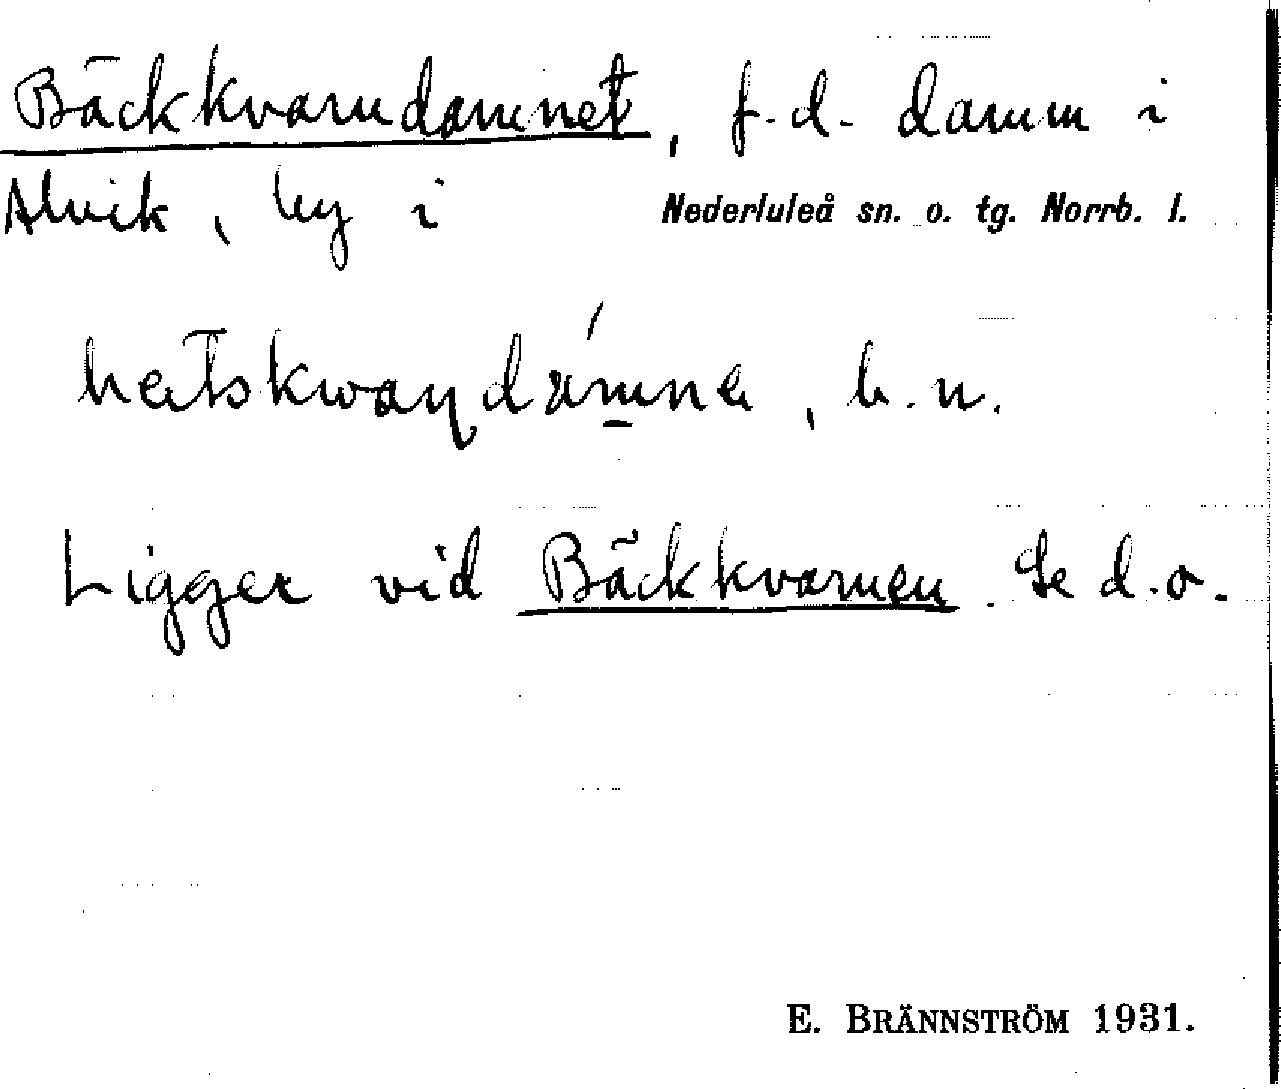 Bäckkvarndammet, f.d. damm i
Alvik, by i Nederluleå sn. o. tg. Norrb. l.
b. n.
Ligger vid Bäckkvarnen. Se d.o.
E. BRÄNNSTRÖM 1931.